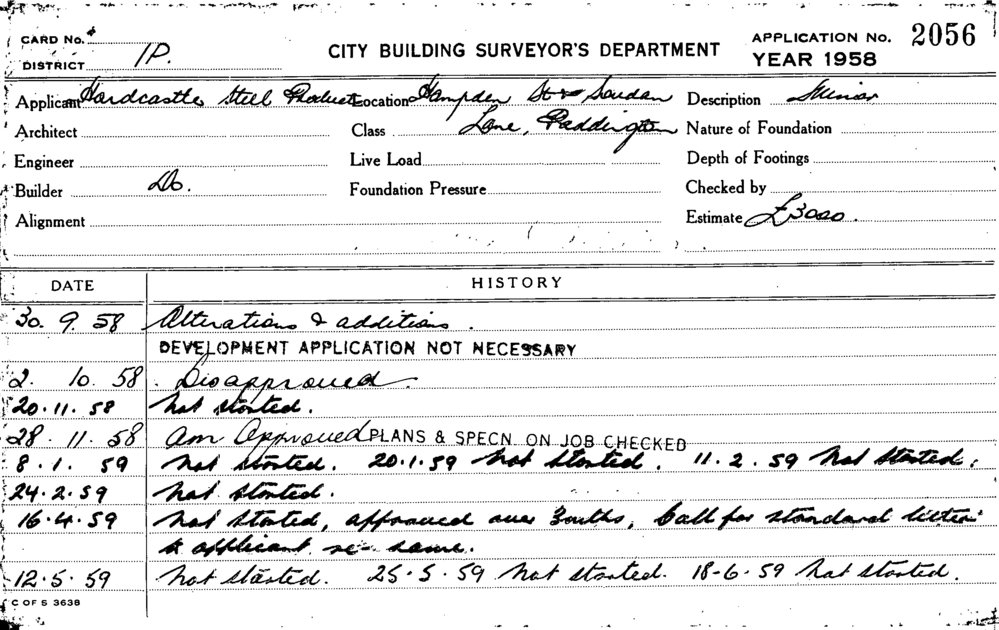 CARD No. 4
DISTRICT 1P.
CITY BUILDING SURVEYOR'S DEPARTMENT
APPLICATION No. 2056
YEAR 1958
Applicant Hardcastle Steel Products Location Hampden St & Soudan Description Minor
Architect Class Lane, Paddington Nature of Foundation
Engineer Live Load Depth of Footings
Builder Do. Foundation Pressure Checked by
Alignment Estimate £3000.
DATE HISTORY
30. 9. 58 Alterations & additions.
DEVELOPMENT APPLICATION NOT NECESSARY
2. 10. 58 Disapproved.
20.11.58 Not started.
28.11.58 Am Approved PLANS & SPECN. ON JOB CHECKED
8.1.59 Not started. 20.1.59 Not started. 11.2.59 Not started.
24.2.59 Not started.
16.4.59 Not started, approved over 3 mths, Call for standard letter
to applicant re- same.
12.5.59 Not started. 25.5.59 Not started. 18-6.59 Not started.
C OF S 3638